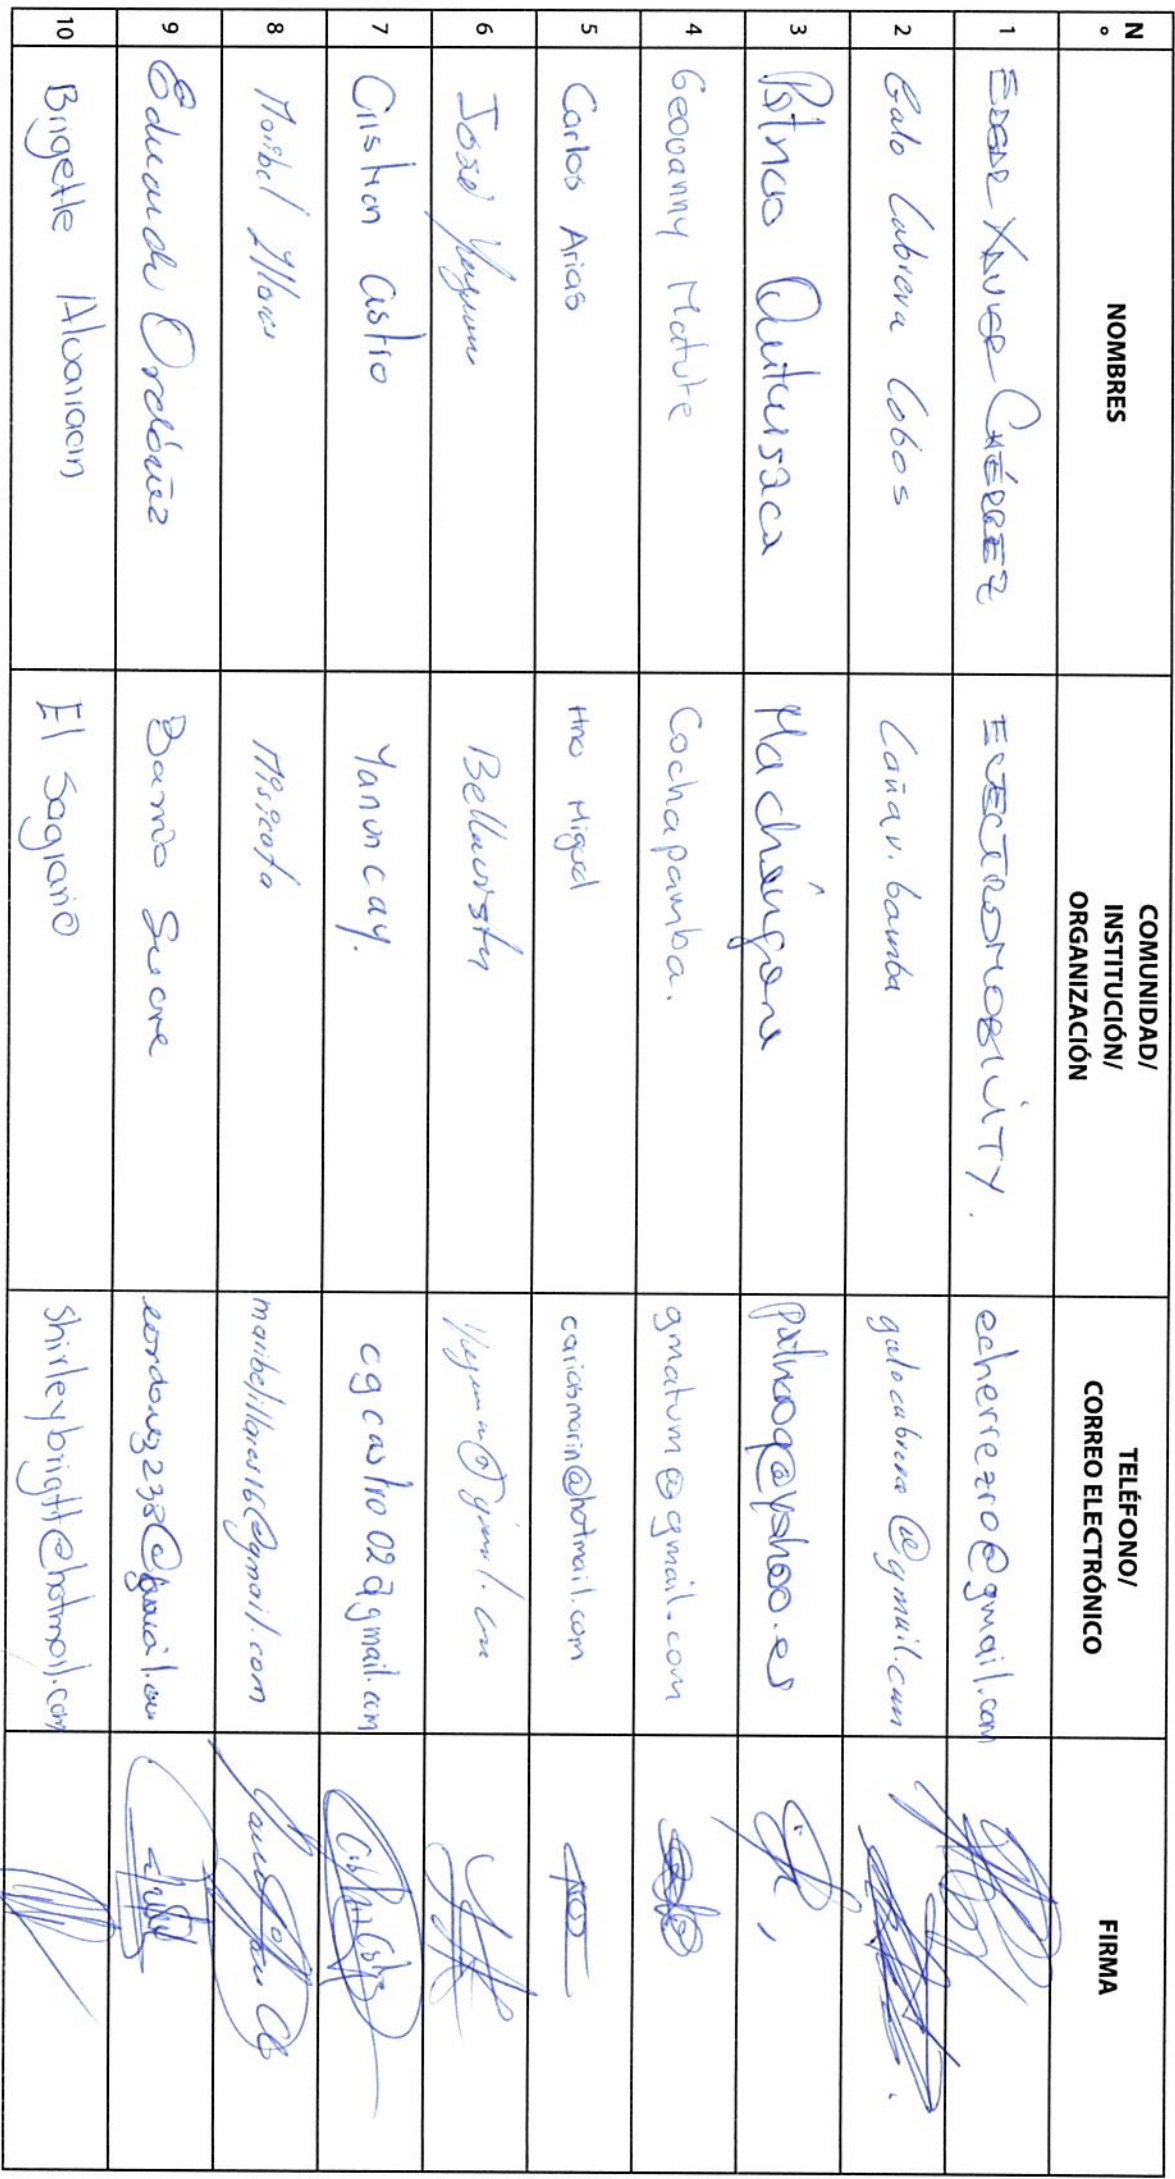 N° NOMBRES COMUNIDAD/ INSTITUCIÓN/ ORGANIZACIÓN TELÉFONO/ CORREO ELECTRÓNICO FIRMA
1 EDGAR XAVIER CHÉRREZ ELECTROMOBILITY. echerrezro@gmail.com
2 Galo Cabrera Cobos Cañav.bamba galocabrera@gmail.com
3 Patricio Quituisaca Machángara patricioq@yahoo.es
4 Geovanny Matute Cochapamba. gmatum@gmail.com
5 Carlos Arias Hno Miguel cariasmarin@hotmail.com
6 José Bellavista
7 Cristian Castro Yanuncay. cgcastro02@gmail.com
8 Maribel Illares Misicata maribelillares16@gmail.com
9 Eduardo Ordóñez Barrio Sucre eordonez238@gmail.com
10 Brigette Alvarracin El Sagrario shirleybrigitt@hotmail.com